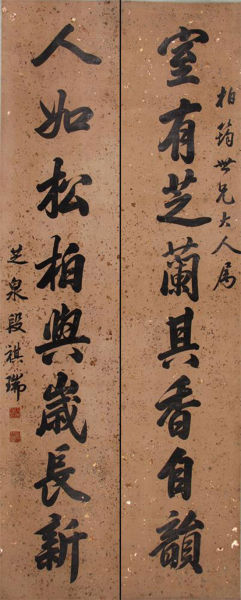 柏筠世兄大人属
室有芝蘭其香自韻
人如松柏與歲長新
芝泉段祺瑞